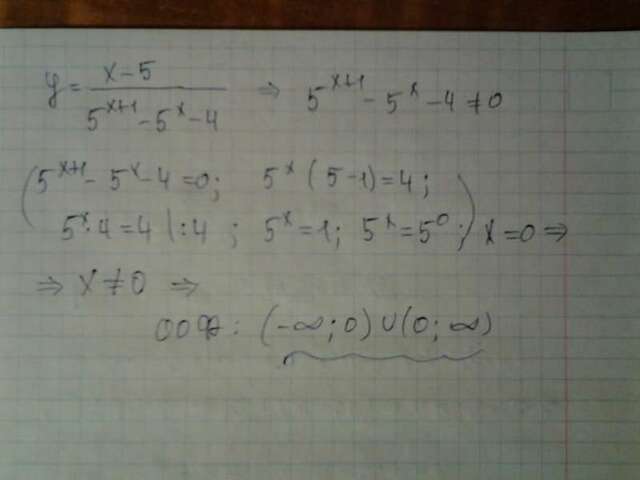 y = (x-5)/(5^(x+1) - 5^x - 4) ⇒ 5^(x+1) - 5^x - 4 ≠ 0
(5^(x+1) - 5^x - 4 = 0; 5^x (5-1) = 4;
5^x · 4 = 4 | : 4 ; 5^x = 1; 5^x = 5^0;) x = 0 ⇒
⇒ x ≠ 0 ⇒
ООФ: (-∞; 0) ∪ (0; ∞)